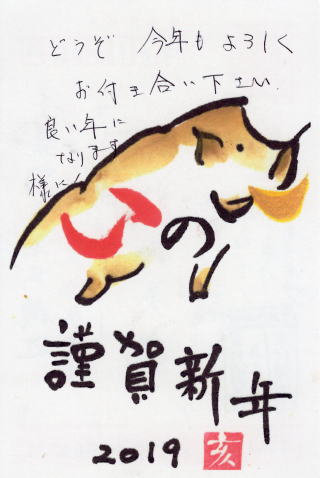 どうぞ 今年もよろしく
お付き合い下さい.
良い年に
なります
様に!
いのり
謹賀新年
2019 亥